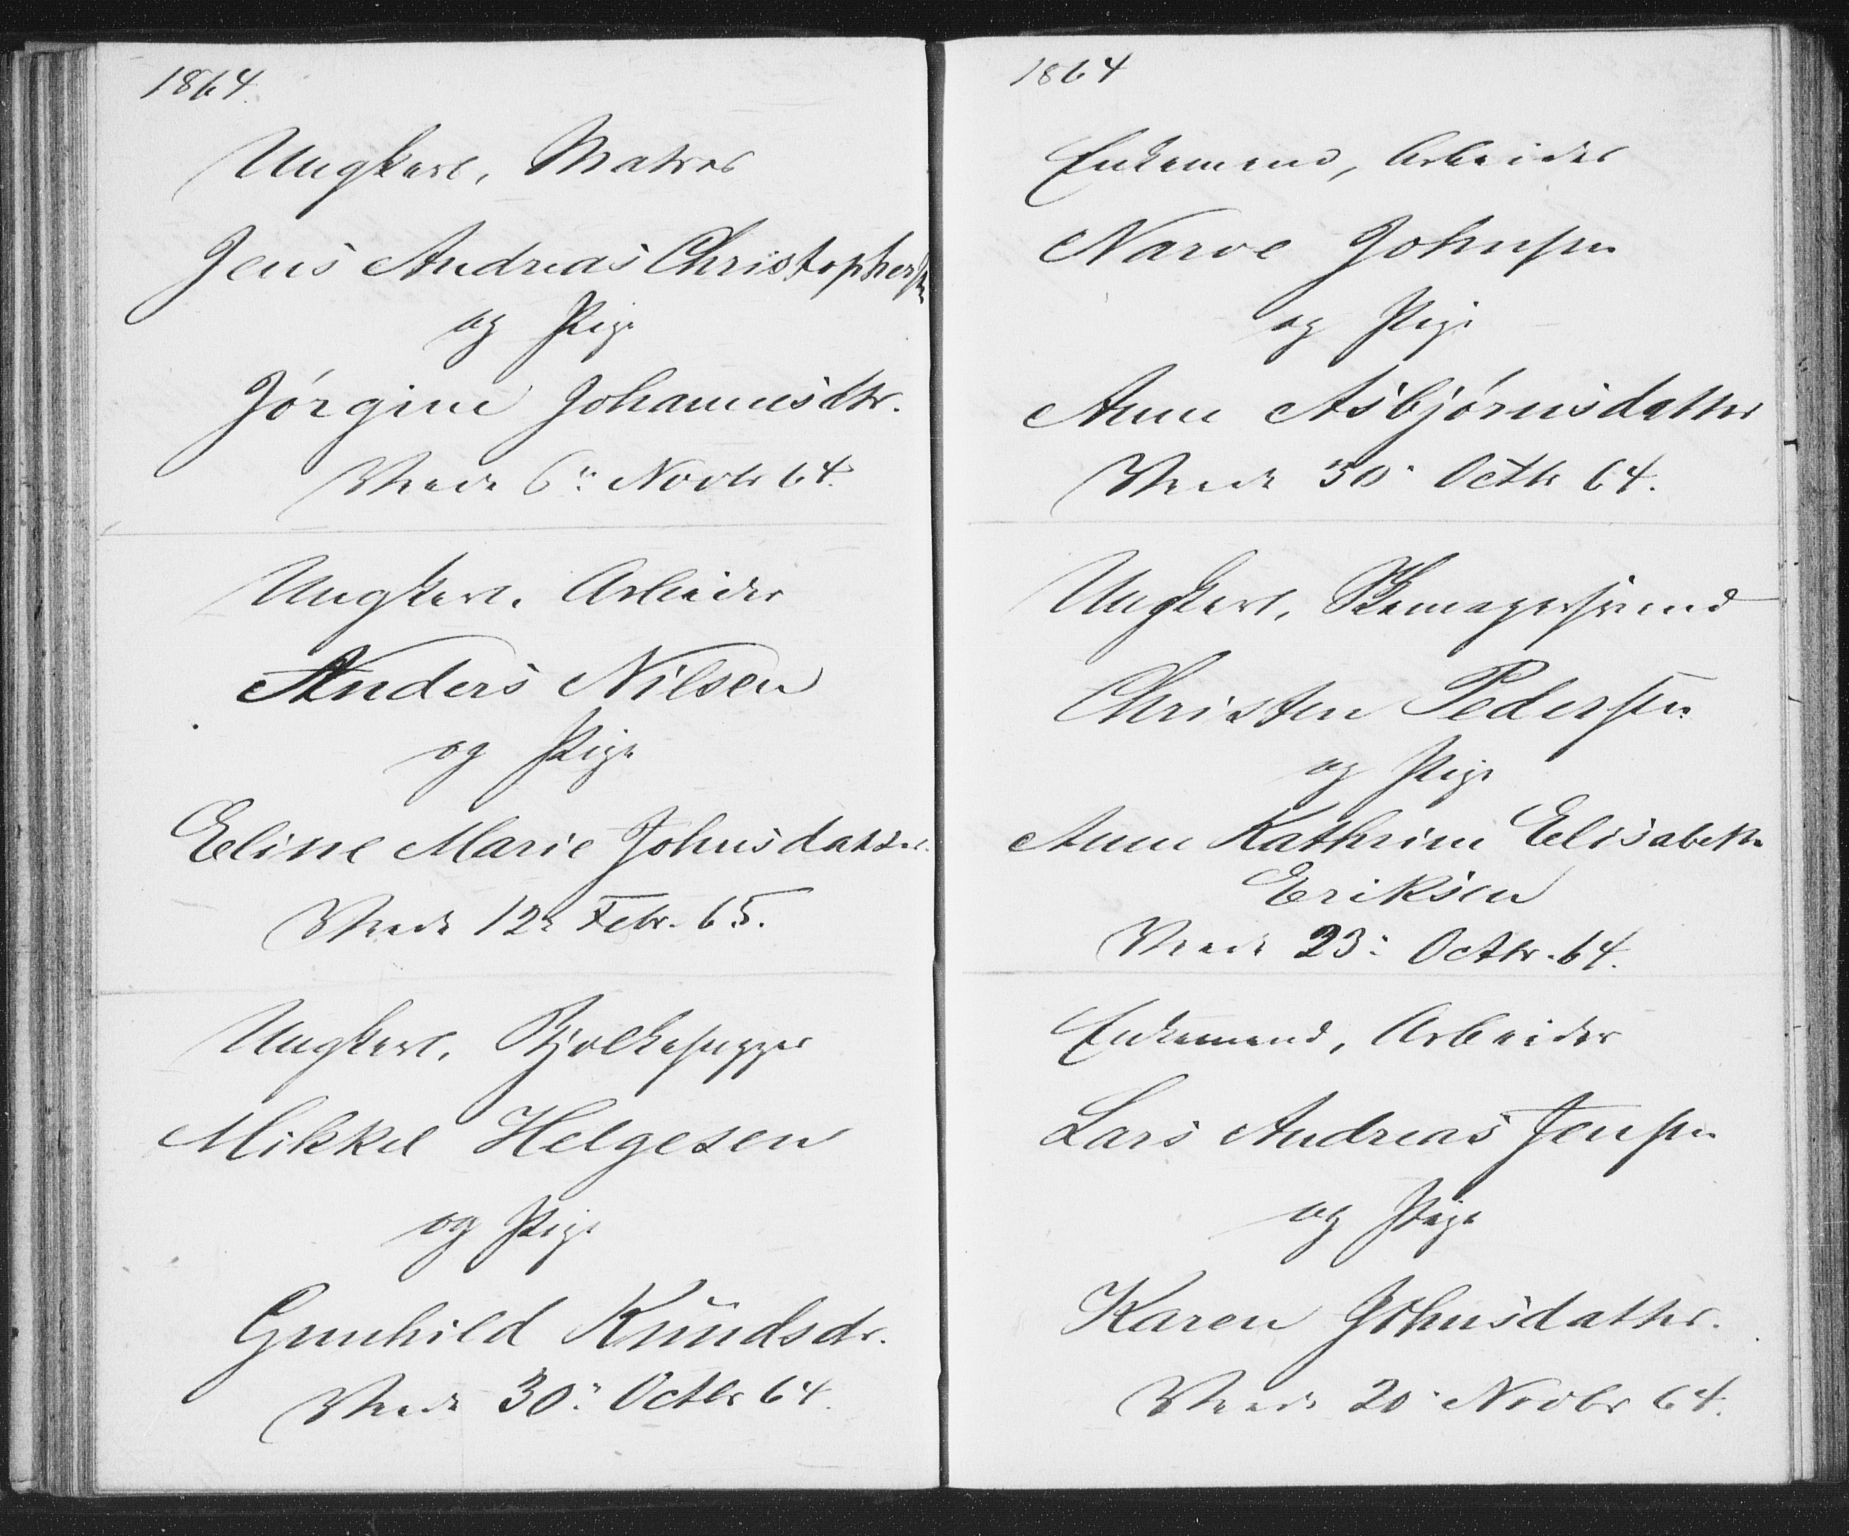 1864.
Ungkarl, Matros
Jens Andreas Christophersen
og Pige
Jørgine Johannesdtr.
Viede 6te Novbr 64.
Ungkarl. Arbeider
Anders Nilsen
og Pige
Eline Marie Johnsdatter.
Viede 12te Febr. 65.
Ungkarl, Bjelkehugger
Mikkel Helgesen
og Pige
Gunhild Knudsdr.
Viede 30: Octbr 64.
1864
Enkemand, Arbeider
Narve Johnsen
og Pige
Anne Asbjørnsdatter
Viede 30 Octbr 64.
Ungkarl,
Christen Pedersen
og Pige
Anne Kathrine Elisabeth
Eriksen
Viede 23: Octbr. 64.
Enkemand, Arbeider
Lars Andreas Jensen
og Pige
Karen Johnsdatter.
Viede 20 Novbr 64.